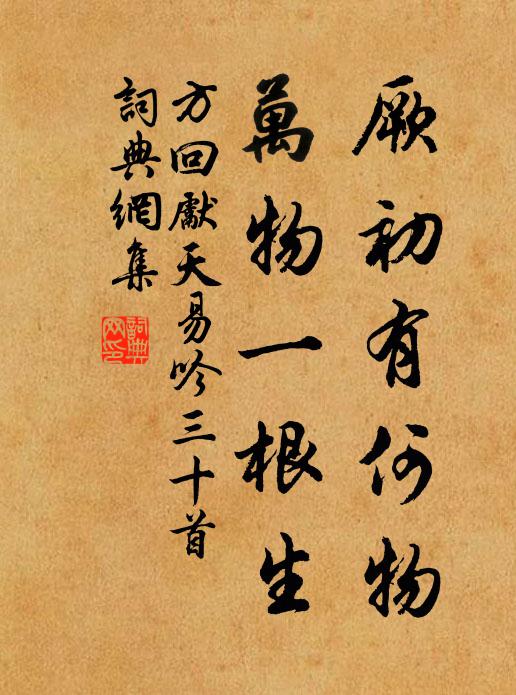 厥初有何物
萬物一根生
方回獻天易吟三十首
詞典網集
詞典網印